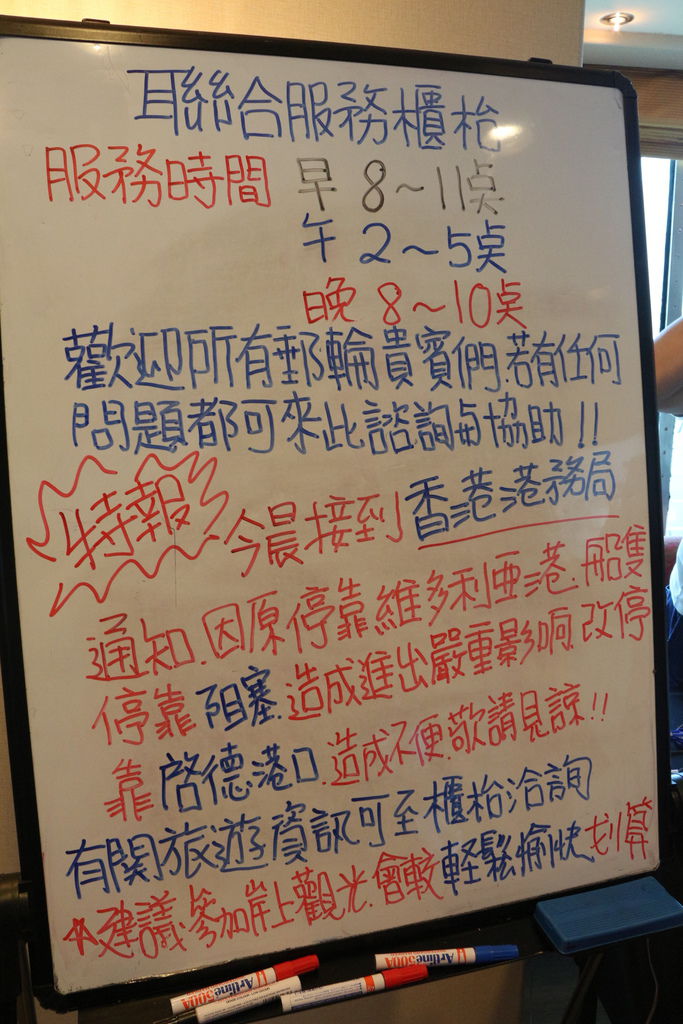 耳聯合服務櫃枱
服務時間 早 8～11点
午 2～5点
晚 8～10点
歡迎所有郵輪貴賓們.若有任何
問題都可來此諮詢与協助!!
特報 今晨接到香港港務局
通知.因原停靠維多利亞港.船隻
停靠阻塞.造成進出嚴重影响.改停
靠啓德港口.造成不便.敬請見諒!!
有関旅遊資訊可至櫃枱洽詢
☆建議參加岸上觀光.會較輕鬆愉快划算
Artline 500A
Artline 500A
Artline